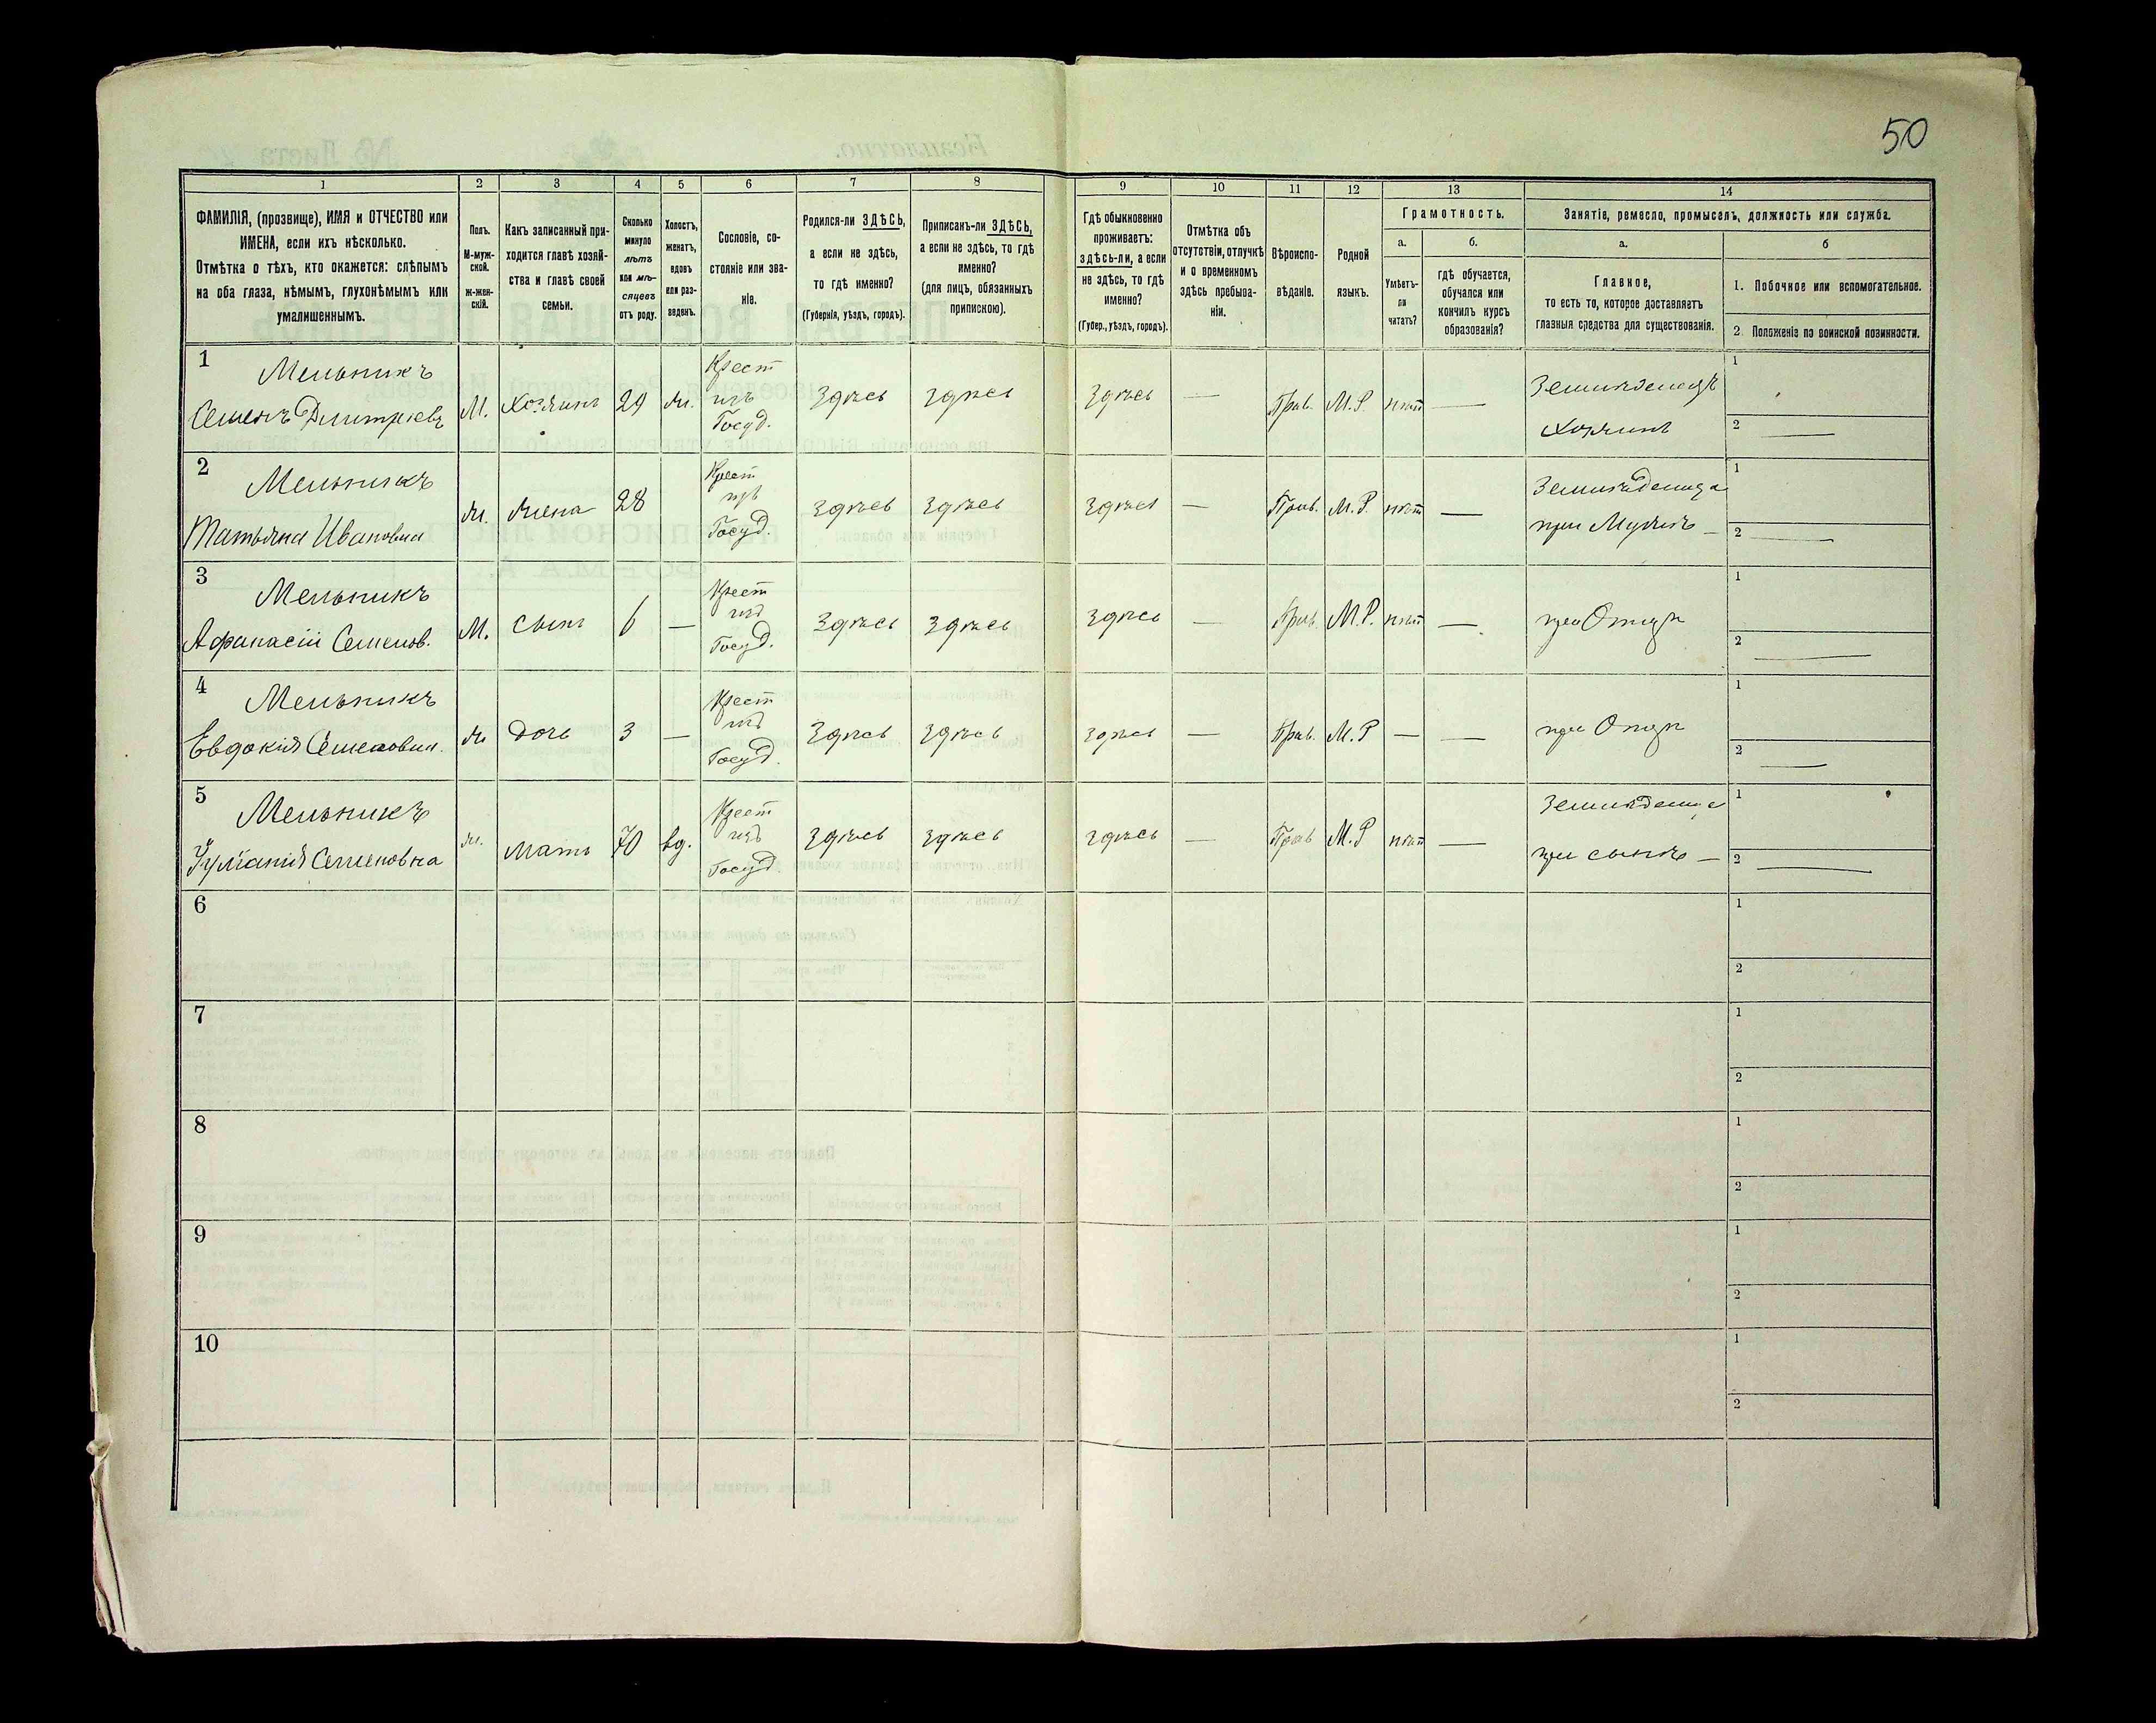 50
1 2 3 4 5 6 7 8 9 10 11 12 13 14
ФАМИЛІЯ, (прозвище), ИМЯ и ОТЧЕСТВО или
ИМЕНА, если ихъ нѣсколько.
Отмѣтка о тѣхъ, кто окажется: слѣпымъ
на оба глаза, нѣмымъ, глухонѣмымъ или
умалишеннымъ.
Полъ.
М-муж-
ской.
ж-жен-
скій.
Какъ записанный при-
ходится главѣ хозяй-
ства и главѣ своей
семьи.
Сколько
минуло
лѣтъ
или мѣ-
сяцевъ
отъ роду.
Холостъ,
женатъ,
вдовъ
или раз-
веденъ.
Сословіе, со-
стояніе или зва-
ніе.
Родился-ли ЗДѢСЬ,
а если не здѣсь,
то гдѣ именно?
(Губернія, уѣздъ, городъ).
Приписанъ-ли ЗДѢСЬ,
а если не здѣсь, то гдѣ
именно?
(для лицъ, обязанныхъ
припискою).
Гдѣ обыкновенно
проживаетъ:
здѣсь-ли, а если
не здѣсь, то гдѣ
именно?
(Губер., уѣздъ, городъ).
Отмѣтка объ
отсутствіи, отлучкѣ
и о временномъ
здѣсь пребыва-
ніи.
Вѣроиспо-
вѣданіе.
Родной
языкъ.
Грамотность.
а.
Умѣетъ-
ли
читать?
б.
гдѣ обучается,
обучался или
кончилъ курсъ
образованія?
Занятіе, ремесло, промыселъ, должность или служба.
а.
Главное,
то есть то, которое доставляетъ
главныя средства для существованія.
б
1. Побочное или вспомогательное.
2. Положеніе по воинской повинности.
1 Мельникъ
Семенъ Дмитріевъ М. Хозяинъ 29 ж. Крест изъ Госуд. Здѣсь Здѣсь Здѣсь — Прав. М.Р. нѣт — Земледелецъ Хозяинъ 1 2 —
2 Мельникъ
Татьяна Ивановна ж. жена 28 Крест изъ Госуд. Здѣсь Здѣсь Здѣсь — Прав. М.Р. нѣт — при Мужѣ — 1 2 —
3 Мельникъ
Афанасій Семенов. М. сынъ 6 — Крест изъ Госуд. Здѣсь Здѣсь Здѣсь — Прав. М.Р. нѣт — при Отцѣ 1 2 —
4 Мельникъ
Евдокія Семеновна. ж дочь 3 — Крест изъ Госуд. Здѣсь Здѣсь Здѣсь — Прав. М.Р — — при Отцѣ 1 2 —
5 Мельникъ
Семеновна ж. мать 70 вд. Крест изъ Госуд Здѣсь Здѣсь Здѣсь — Прав М.Р нѣт — при сынѣ — 1 2 —
6 1 2
7 1 2
8 1 2
9 1 2
10 1 2